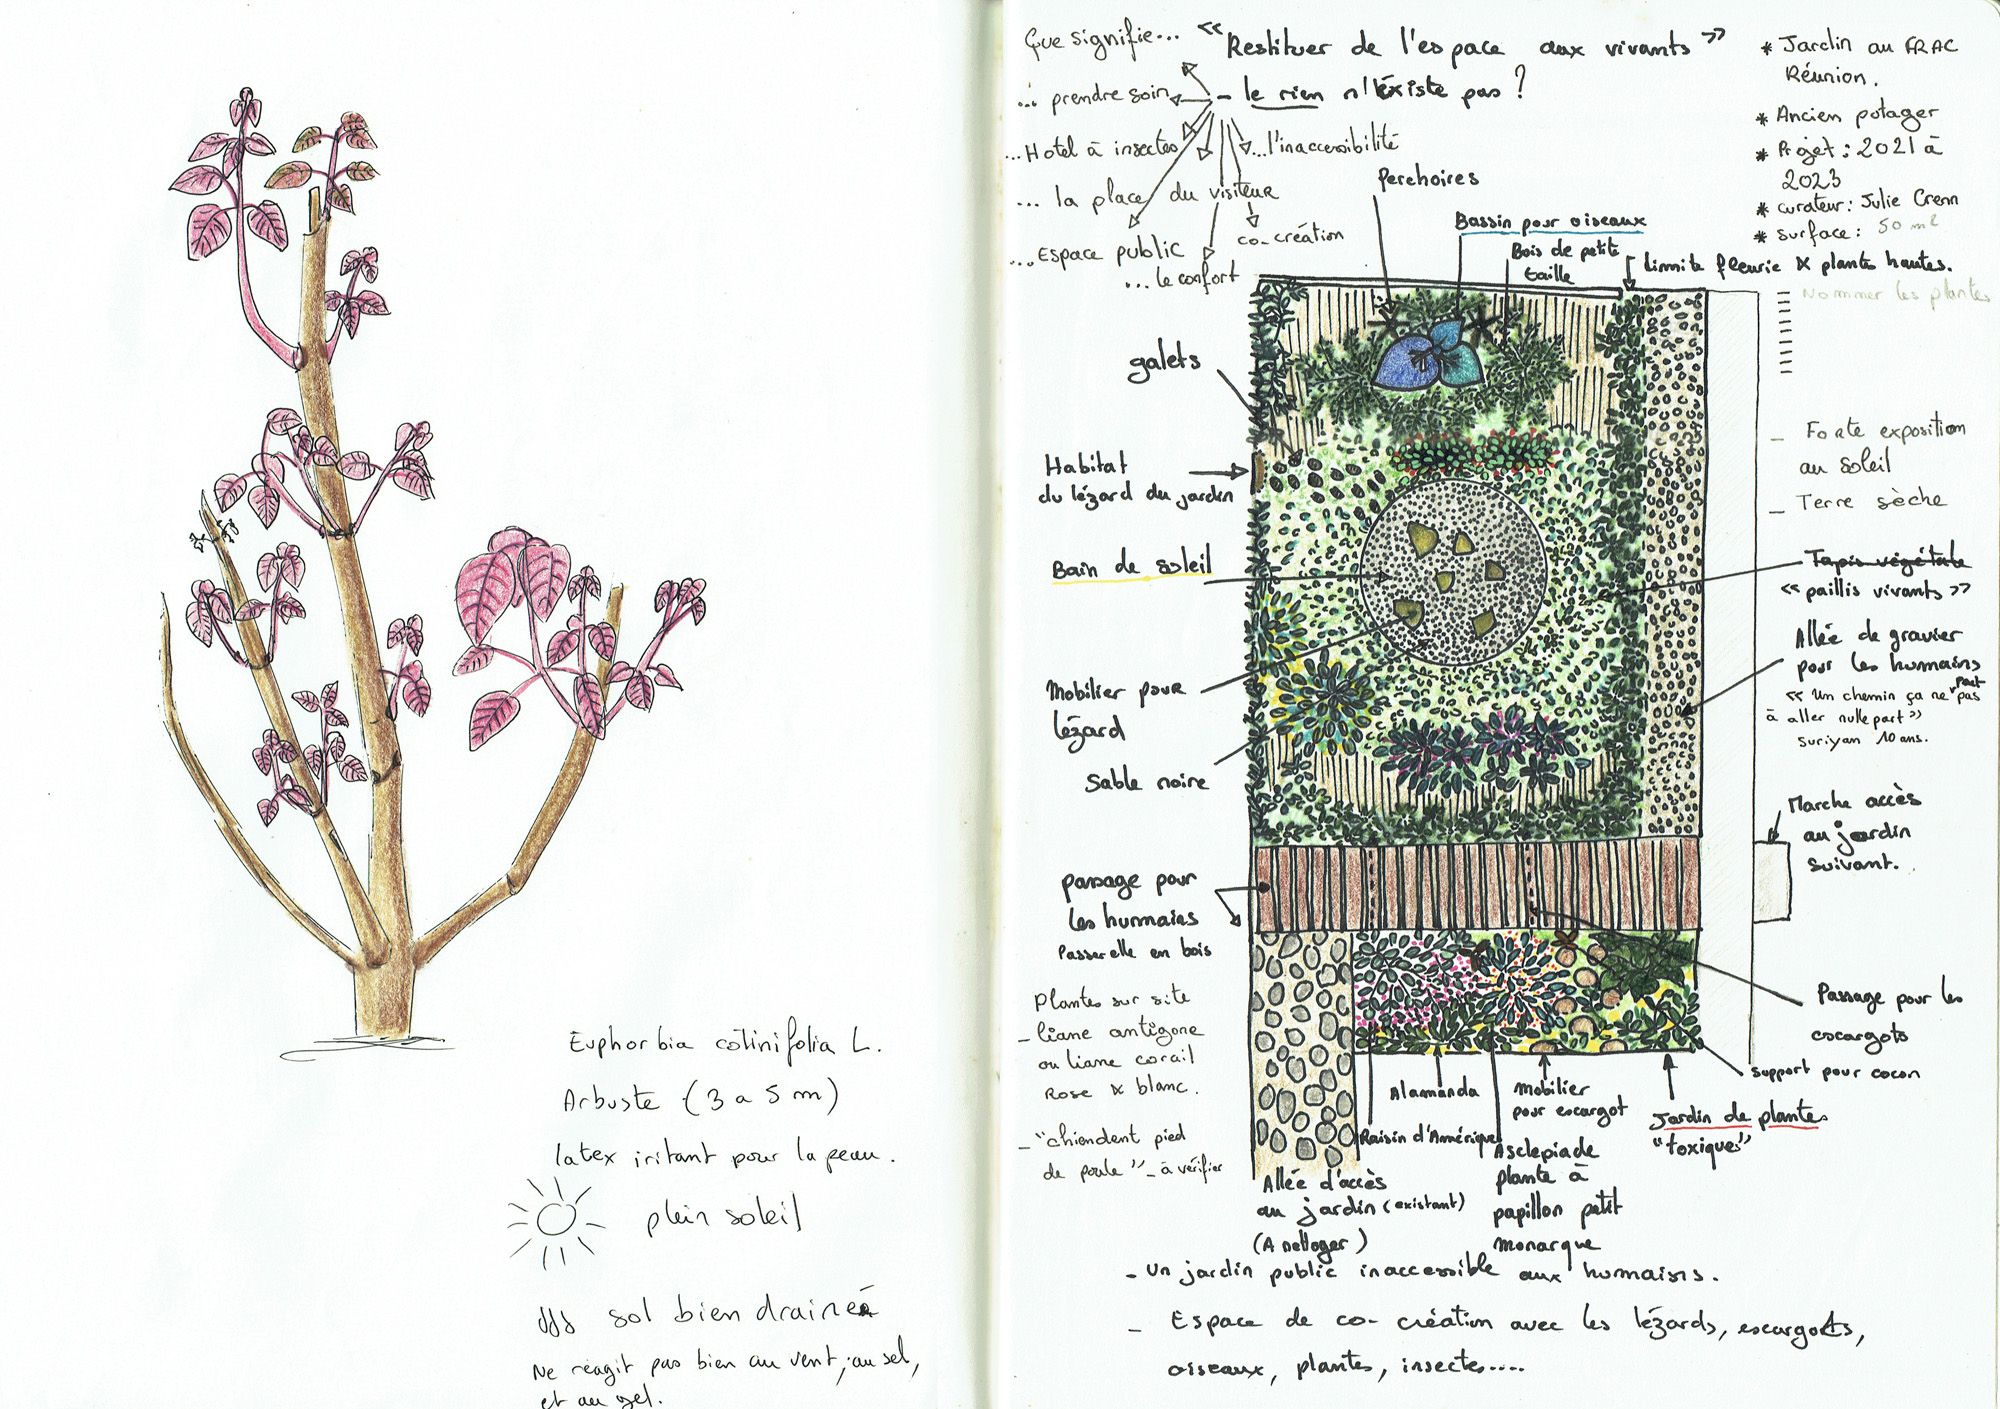 Euphorbia cotinifolia L.
Arbuste (3 a 5 m)
latex irritant pour la peau.
plein soleil
sol bien drainé
Ne réagit pas bien au vent, au sel,
et au gel.
Que signifie... << Restituer de l'espace aux vivants >>
... prendre soin
- le rien n'éxiste pas ?
...Hotel à insectes
...l'inaccessibilité
... la place du visiteur
... Espace public
co-création
... le confort
* Jardin au FRAC
Réunion.
* Ancien potager
* Projet : 2021 à
2023
* curateur : Julie Crenn
* surface : 50 m²
Perchoires
Bassin pour oiseaux
Bois de petite
taille
limite fleurie & plantes hautes.
Nommer les plantes
galets
Habitat
du lézard du jardin
Bain de soleil
Mobilier pour
lézard
Sable noire
passage pour
les humains
Passerelle en bois
Plantes sur site
- liane antigone
ou liane corail
Rose & blanc.
- "chiendent pied
de poule" - à vérifier
- Forte exposition
au soleil
- Terre sèche
Tapis végétale
<< paillis vivants >>
Allée de gravier
pour les humains
<< Un chemin ça ne peut pas
à aller nulle part >>
Suriyan 10 ans.
Marche accès
au jardin
suivant.
Passage pour les
escargots
support pour cocon
Alamanda
Mobilier
pour escargot
Jardin de plantes
"toxique"
Raisin d'Amérique
Asclepiade
plante à
papillon petit
monarque
Allée d'accès
au jardin (existant)
(A nettoyer)
- Un jardin public inaccessible aux humains.
- Espace de co-création avec les lézards, escargots,
oiseaux, plantes, insectes....